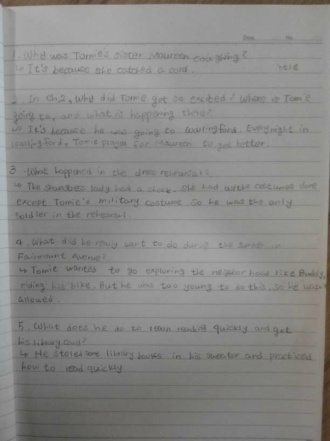 Date No
1. Why was Tomie's sister Maureen crying?
↳ It's because she catched a cold
2. In Ch2, Why did Tomie get so excited? Where is Tomie
going to, and what is happening there?
↳ It's because he was going to Wallingford. Every night in
Wallingford, Tomie prayed for Maureen to get better.
3. What happened in the dress rehearsal?
↳ The lady had a . She had all the costumes done
except Tomie's military costume. So he was the only
soldier in the rehearsal.
4. What did he really want to do during the in
Fairmount Avenue?
↳ Tomie wanted to go exploring the neighborhood like Buddy,
riding his bike. But he was too young to do this, so he wasn't
allowed.
5. What does he do to learn reading quickly and get
his library card?
↳ He some library books in his sweater and practiced
how to read quickly